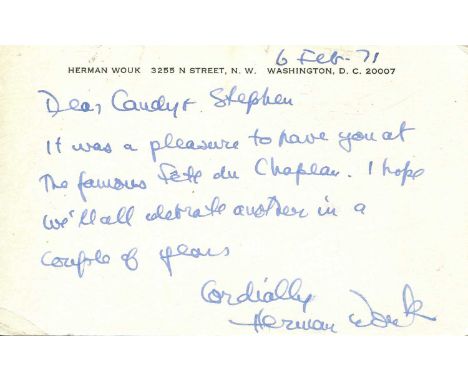 6 Feb - 71
HERMAN WOUK 3255 N STREET, N. W. WASHINGTON, D. C. 20007
Dear Candy + Stephen
It was a pleasure to have you at
the famous Fête du Chapeau. I hope
we'll all celebrate another in a
couple of years
Cordially
Herman Wouk